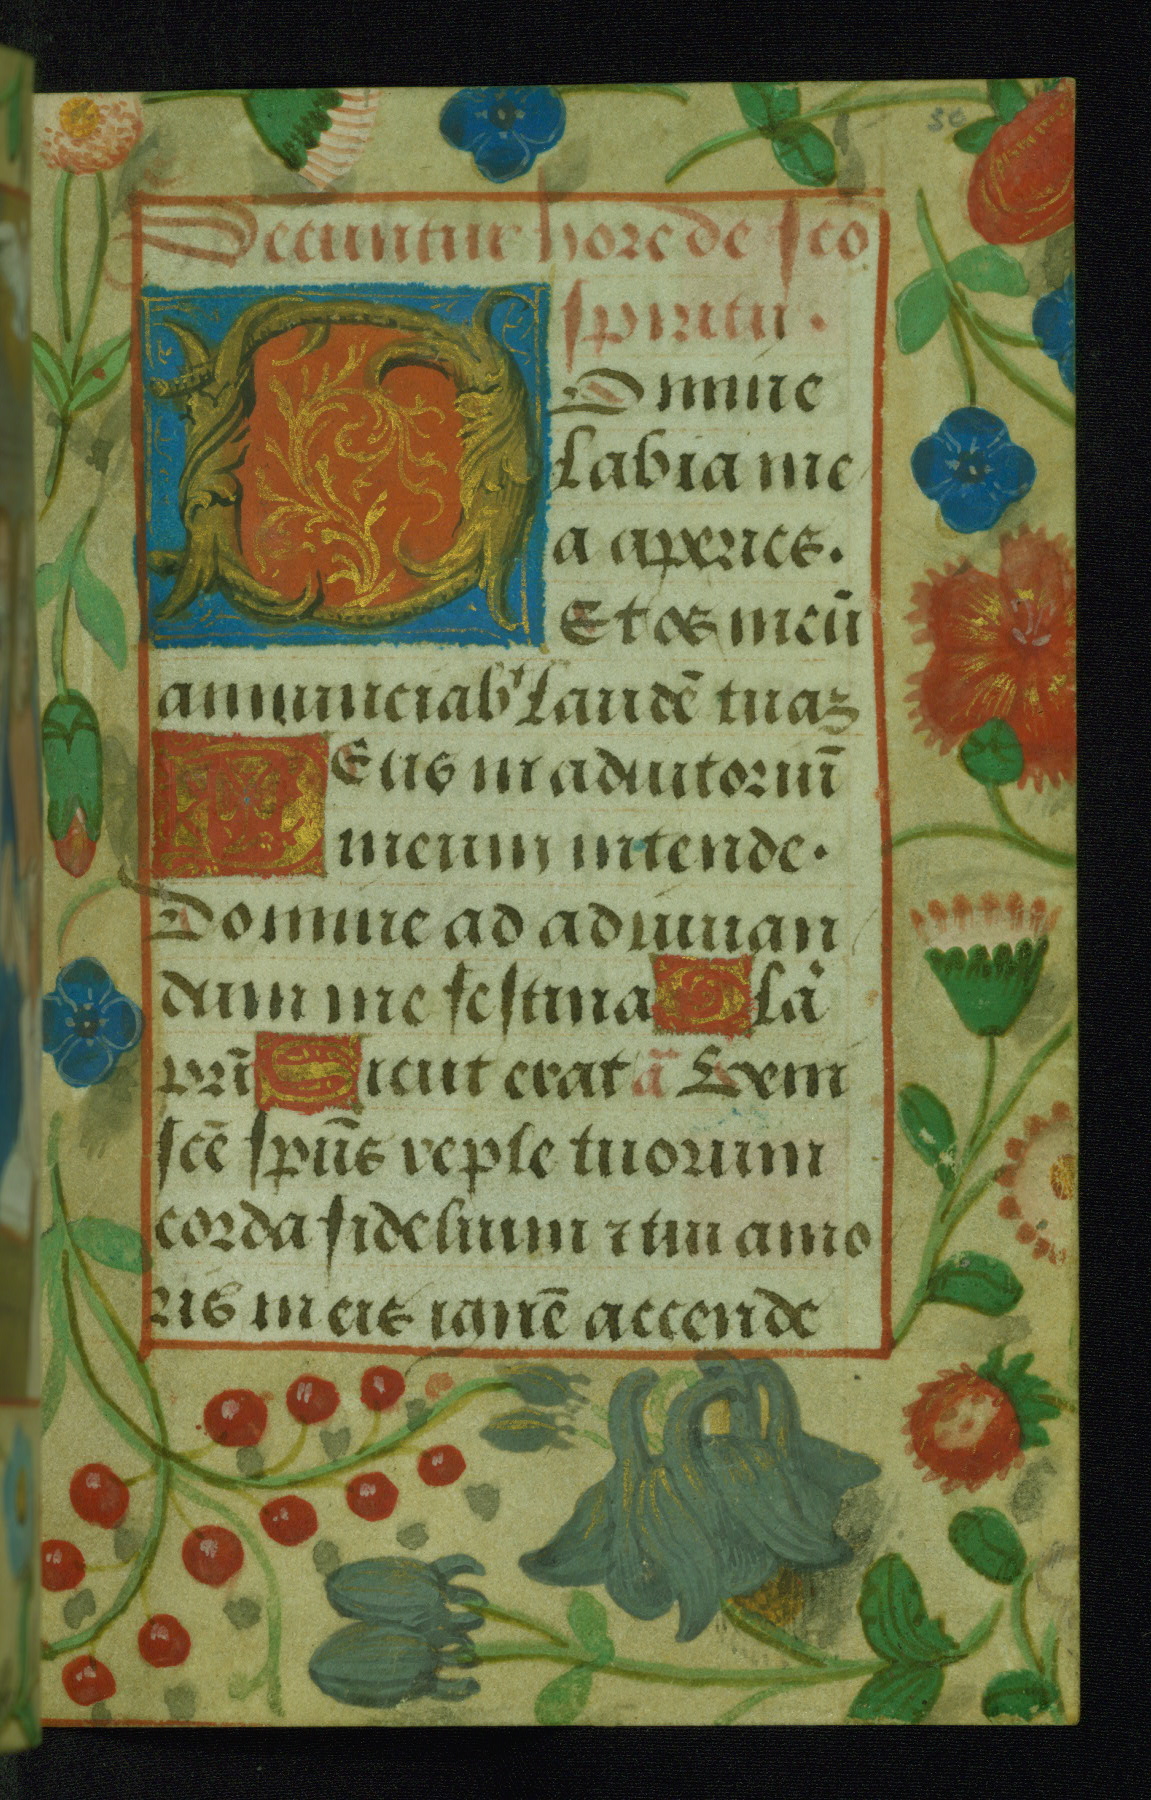 50
Secuntur hore de sco
spiritu.
Domine
labia me
a aperies.
Et os meū
annunciabᵗ laudē tuaz
Deus in adiutoriū
meum intende.
Domine ad adiuuan
dum me festina Glā
pri Sicut erat ā Uem
scē spūs reple tuorum
corda fidelium ⁊ tui amo
ris in eis ignē accende